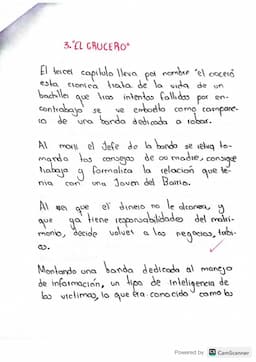 3. "EL CRUCERO"
El tercer capitulo lleva por nombre "el crucero
esta cronica trata de la vida de un
bachiller que tras intentos fallidos por en-
contrabajo se ve envuelto como compare-
cio de una banda dedicada a robar.
Al morir el Jefe de la banda se retira to-
mando los consejos de su madre, consigue
trabajo y formaliza la relación que te-
nia con una Joven del Barrio.
Al ver que el dinero no le alcanza, y
que ya tiene responsabilidades del matri-
monio, decide volver a los negocios,
Montando una banda dedicada al manejo
de información, un tipo de inteligencia de
las victimas, lo que era conocido como los
Powered by CS CamScanner